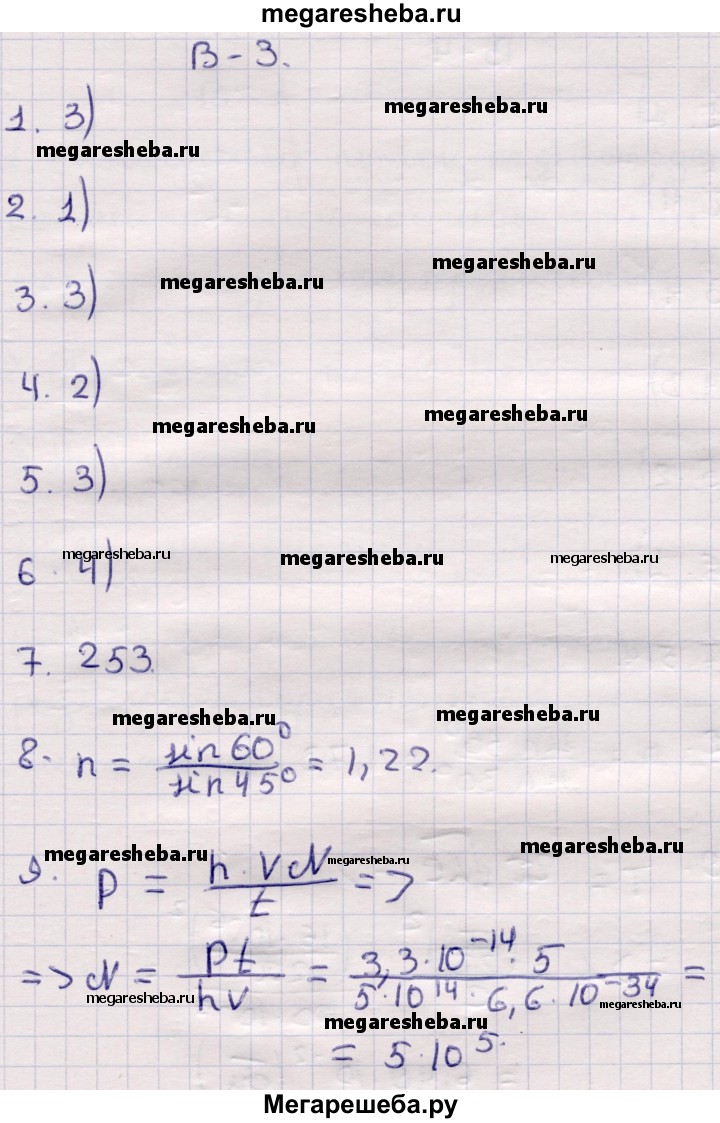 megaresheba.ru
В-3.
megaresheba.ru
1. 3)
megaresheba.ru
2. 1)
megaresheba.ru
megaresheba.ru
3. 3)
4. 2)
megaresheba.ru
megaresheba.ru
5. 3)
megaresheba.ru
megaresheba.ru
megaresheba.ru
6. 4)
7. 253.
megaresheba.ru
megaresheba.ru
8. n = sin 60° / sin 45° = 1,22.
megaresheba.ru
megaresheba.ru
megaresheba.ru
9. P = h · ν N / t =>
=> N = Pt / hν = 3,3·10⁻¹⁴ · 5 / 5·10¹⁴ · 6,6 · 10⁻³⁴ =
megaresheba.ru
megaresheba.ru
megaresheba.ru
= 5·10⁵.
Мегарешеба.ру